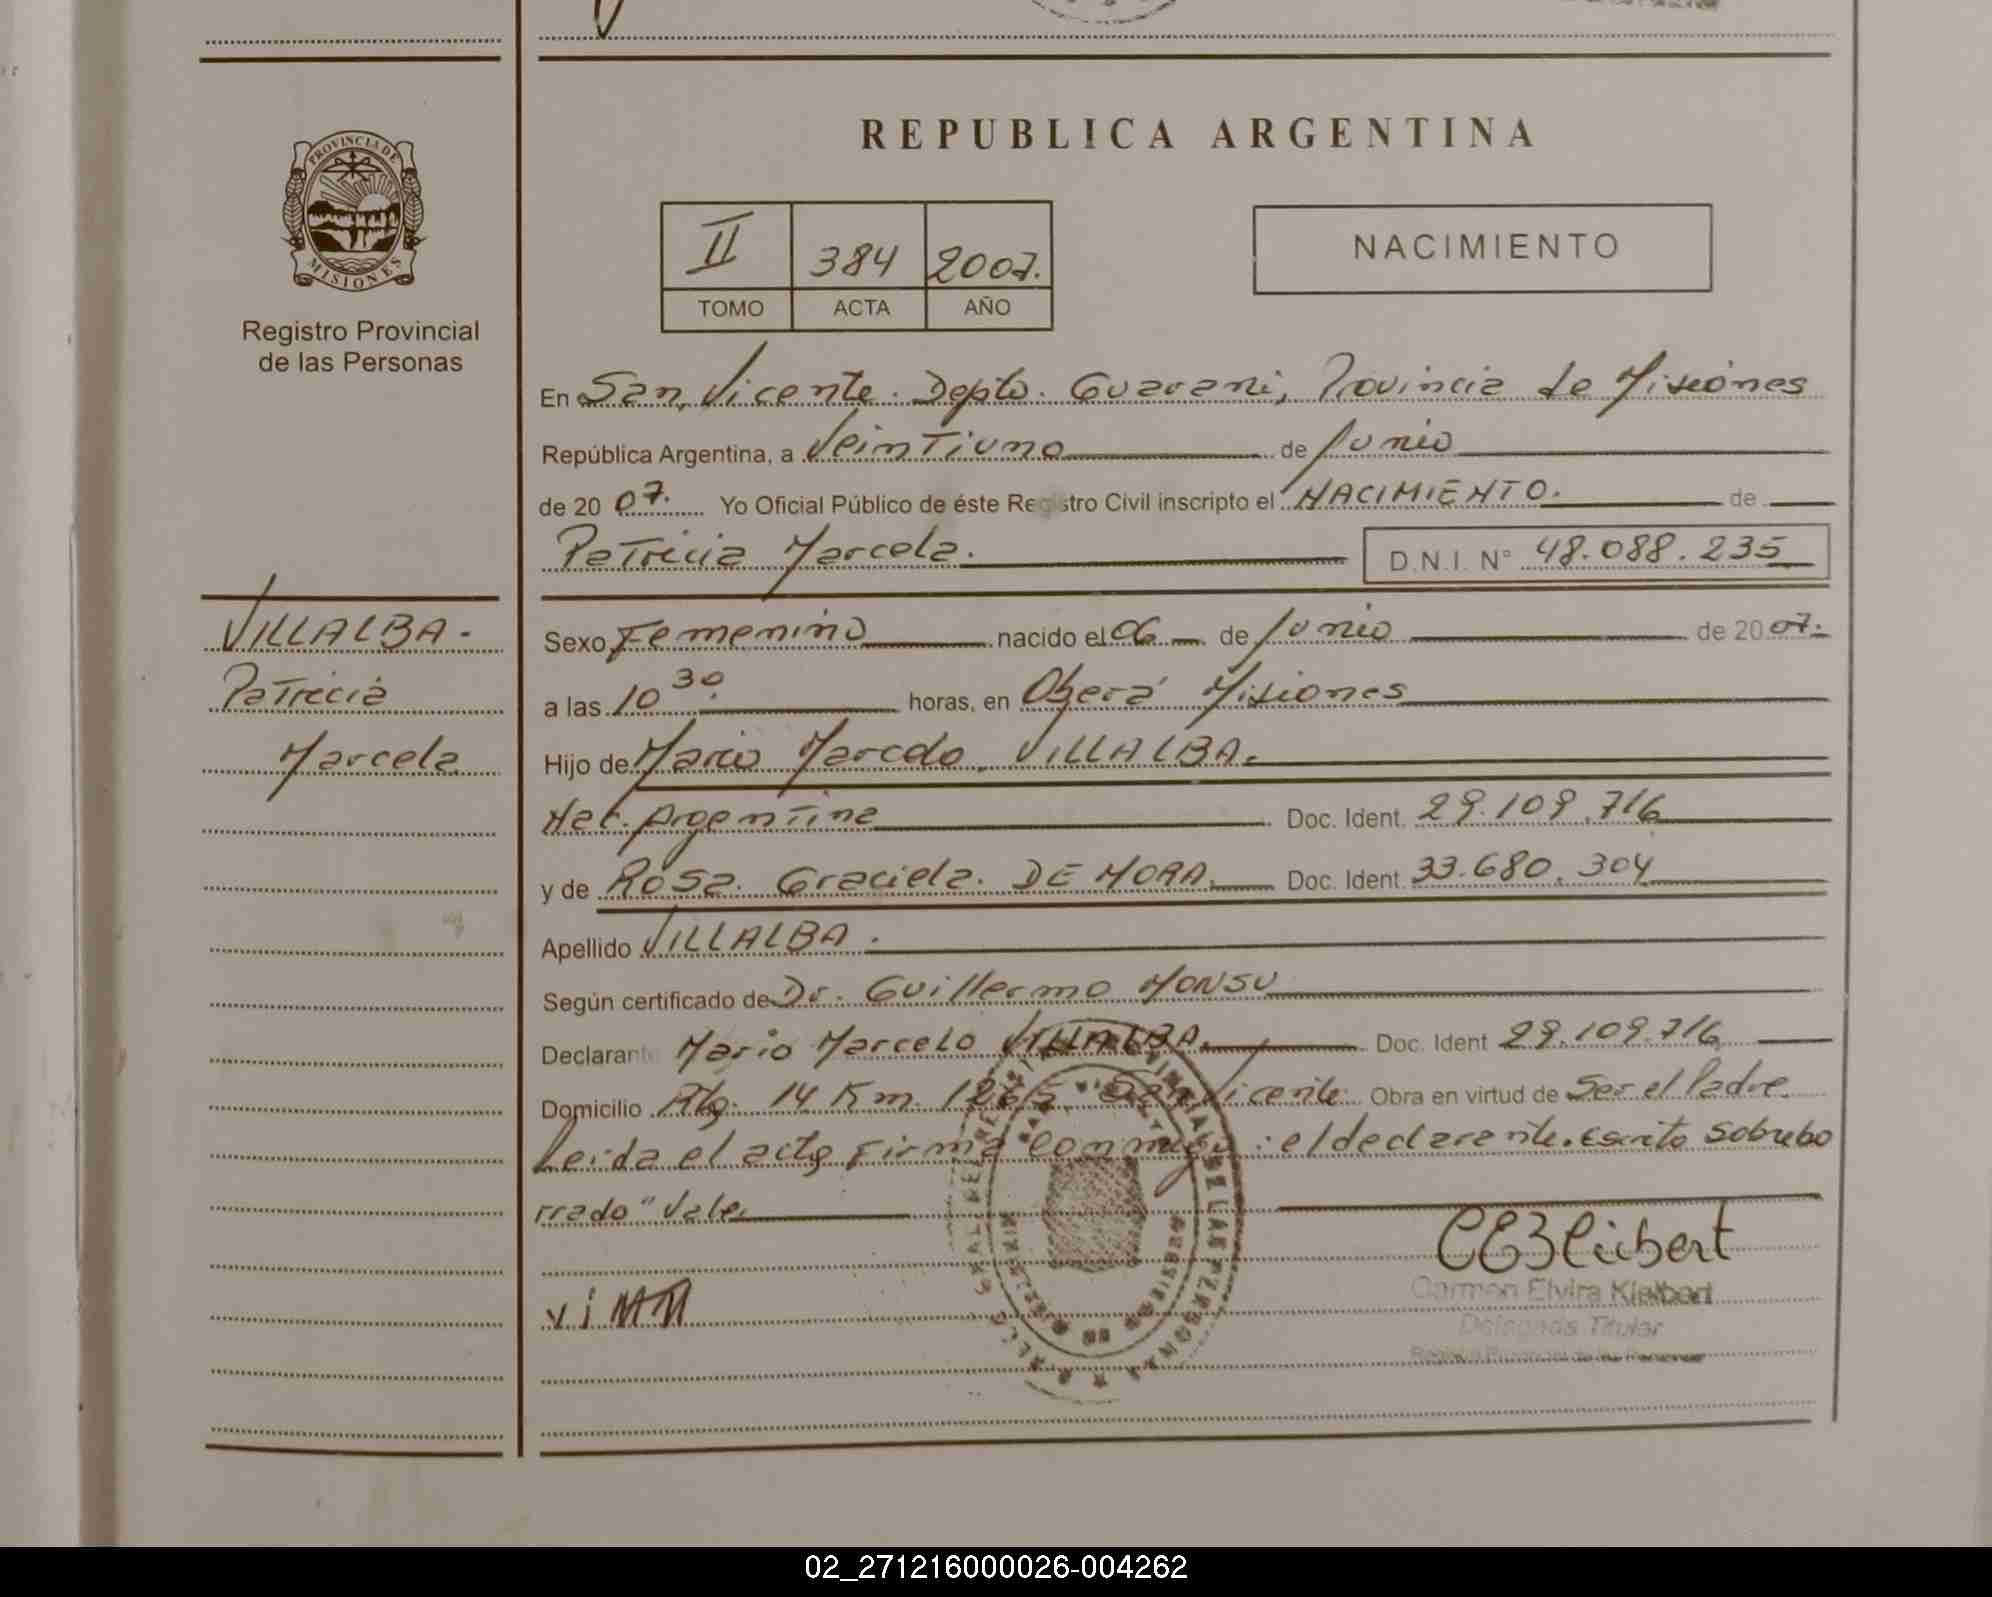 REPUBLICA ARGENTINA
PROVINCIA DE
MISIONES
Registro Provincial
de las Personas
II 384 2007.
TOMO ACTA AÑO
NACIMIENTO
En San Vicente. Depto. Guaraní, Provincia de Misiones
República Argentina, a Veintiuno de Junio
de 20 07. Yo Oficial Público de éste Registro Civil inscripto el NACIMIENTO. de
Patricia Marcela. D.N.I. N° 48.088.235
VILLALBA.
Patricia
Marcela
Sexo Femenino nacido el 06 de Junio de 20 07.
a las 10 30 horas, en Oberá Misiones
Hijo de Mario Marcelo VILLALBA.
Nac. Argentina Doc. Ident. 29.109.716
y de Rosa Graciela DE MORA. Doc. Ident. 33.680.304
Apellido VILLALBA.
Según certificado de Dr. Guillermo MONSU
Declarante Mario Marcelo VILLALBA. Doc. Ident 29.109.716
Domicilio Km. San Vicente Obra en virtud de Ser el Padre.
Leida el acta, Firma conmigo: el declarante. Escrito sobrebo
rrado "Vale.
Carmen Elvira Kleibert
Delegada Titular
02_271216000026-004262